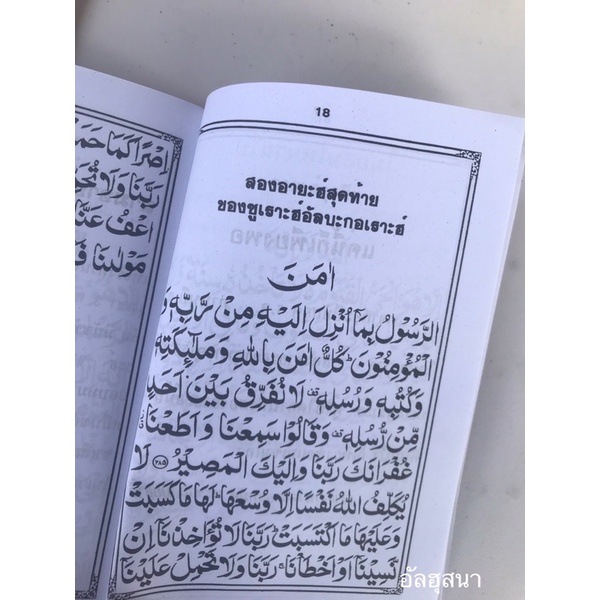 18
สองอายะฮ์สุดท้าย
ของซูเราะฮ์อัลบะกอเราะฮ์
اٰمَنَ
الرَّسُوْلُ بِمَآ اُنْزِلَ اِلَيْهِ مِنْ رَّبِّهٖ وَ
الْمُؤْمِنُوْنَ ؕ كُلٌّ اٰمَنَ بِاللّٰهِ وَمَلٰٓئِكَتِهٖ
وَكُتُبِهٖ وَرُسُلِهٖ ۫ لَا نُفَرِّقُ بَيْنَ اَحَدٍ
مِّنْ رُّسُلِهٖ ۫ وَقَالُوْا سَمِعْنَا وَاَطَعْنَا
غُفْرَانَكَ رَبَّنَا وَاِلَيْكَ الْمَصِيْرُ ﴿٢٨٥﴾ لَا
يُكَلِّفُ اللّٰهُ نَفْسًا اِلَّا وُسْعَهَا ؕ لَهَا مَا كَسَبَتْ
وَعَلَيْهَا مَا اكْتَسَبَتْ ؕ رَبَّنَا لَا تُؤَاخِذْنَآ اِنْ
نَّسِيْنَآ اَوْ اَخْطَاْنَا ۚ رَبَّنَا وَلَا تَحْمِلْ عَلَيْنَآ
اِصْرًا كَمَا
رَبَّنَا وَلَا
اعْفُ عَنَّا
مَوْلٰىنَا
อัลฮุสนา